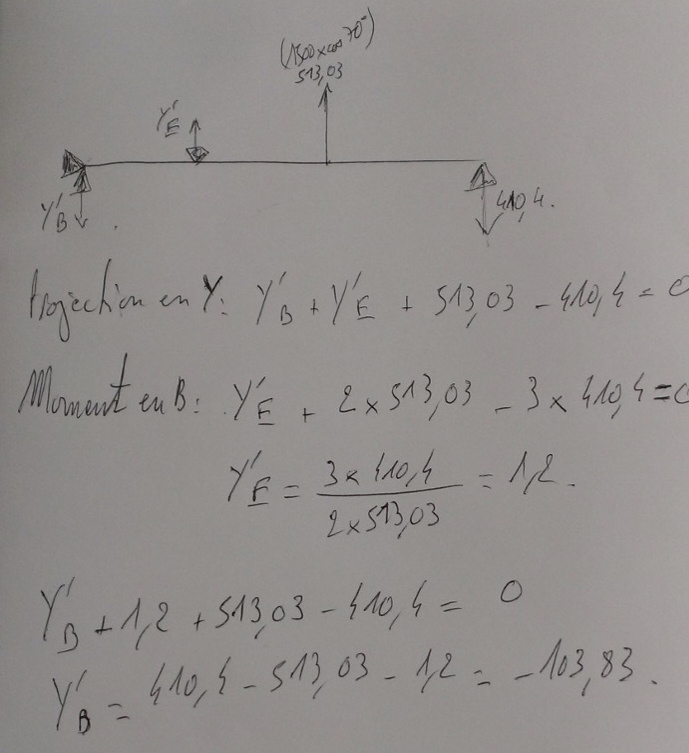 (1500xcos 70°)
513,03
Y'E
Y'B
410,4.
Projection en Y: Y'B + Y'E + 513,03 - 410,4 = 0
Moment en B: Y'E + 2 x 513,03 - 3 x 410,4 = 0
Y'E = 3 x 410,4 / 2 x 513,03 = 1,2.
Y'B + 1,2 + 513,03 - 410,4 = 0
Y'B = 410,4 - 513,03 - 1,2 = -103,83.